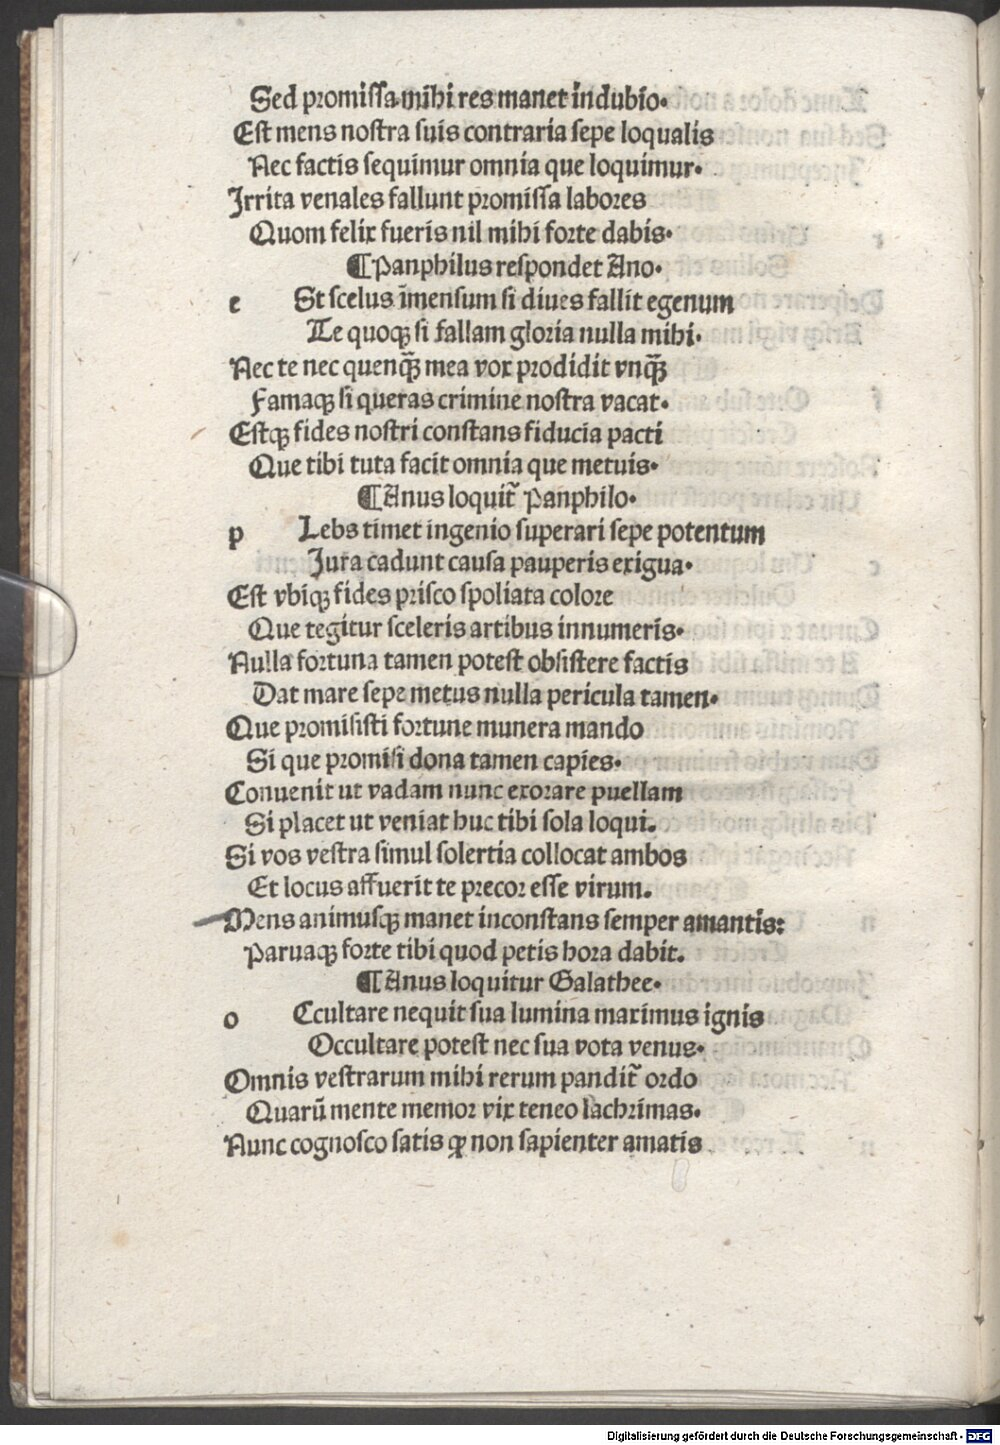 Sed promiſſa mihi res manet in dubio.
Eſt mens noſtra ſuis contraria ſepe loqualis
Nec factis ſequimur omnia que loquimur.
Irrita venales fallunt promiſſa labores
Quom felix fueris nil mihi forte dabis.
¶ Panphilus reſpondet Ano.
e St ſcelus īmenſum ſi diues fallit egenum
Te quoqꝫ ſi fallam gloria nulla mihi.
Nec te nec quenqꝫ̄ mea vox prodidit vnqꝫ̄
Famaqꝫ ſi queras crimine noſtra vacat.
Eſtqꝫ fides noſtri conſtans fiducia pacti
Que tibi tuta facit omnia que metuis.
¶ Anus loquit᷑ Panphilo.
p Lebs timet ingenio ſuperari ſepe potentum
Jura cadunt cauſa pauperis exigua.
Eſt vbiqꝫ fides priſco ſpoliata colore
Que tegitur ſceleris artibus innumeris.
Nulla fortuna tamen poteſt obſiſtere factis
Dat mare ſepe metus nulla pericula tamen.
Que promiſiſti fortune munera mando
Si que promiſi dona tamen capies.
Conuenit ut vadam nunc exorare puellam
Si placet ut veniat huc tibi ſola loqui.
Si vos veſtra ſimul ſolertia collocat ambos
Et locus affuerit te precor eſſe virum.
Mens animuſqꝫ manet inconſtans ſemper amantis:
Paruaqꝫ forte tibi quod petis hora dabit.
¶ Anus loquitur Galathee.
o Ccultare nequit ſua lumina maximus ignis
Occultare poteſt nec ſua vota venus.
Omnis veſtrarum mihi rerum pandit᷑ ordo
Quarū mente memor vix teneo lachrimas.
Nunc cognoſco ſatis ꝙ non ſapienter amatis
Digitalisierung gefördert durch die Deutsche Forschungsgemeinschaft - DFG